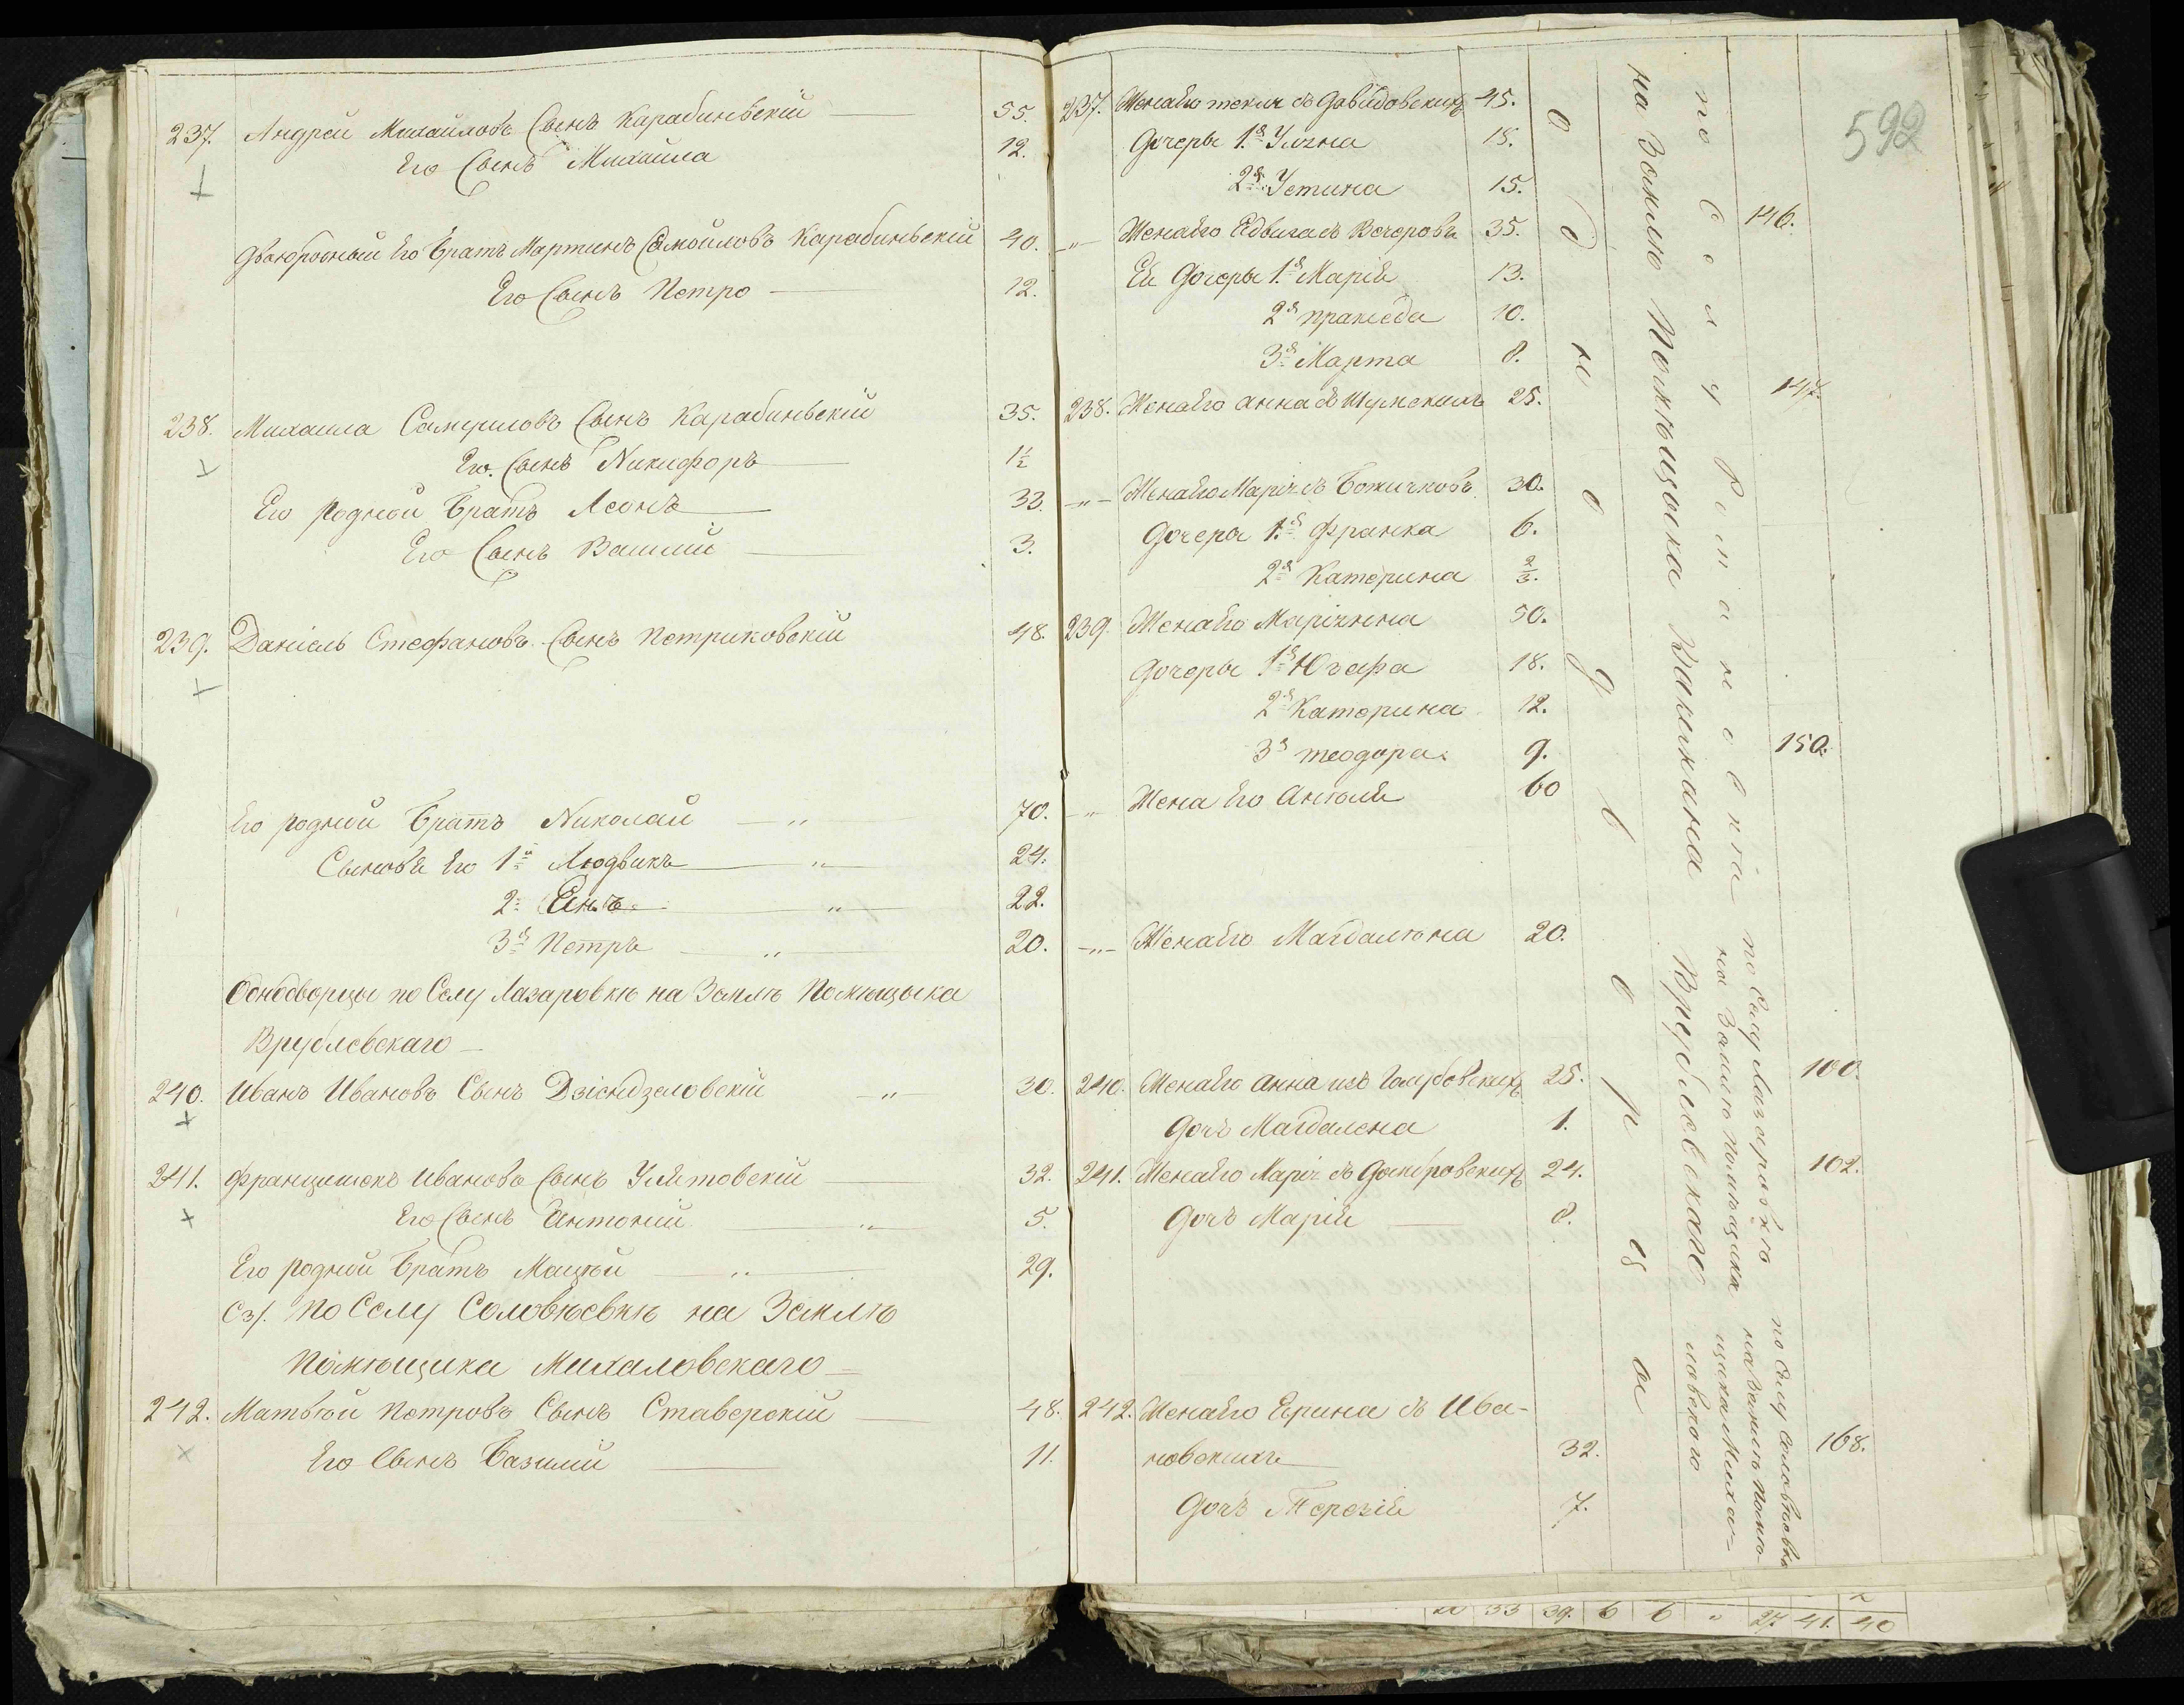 237. Андрей Михайловъ Сынъ Карабиньвскій 55.
Его Сынъ Михайла 12.
Двоюродный Его Братъ Мартинъ Самойловъ Карабиньвскій 40.
Его Сынъ Петро 12.
238. Михаила Самуиловъ Сынъ Карабиньвскій 35.
Его Сынъ Никифоръ 1½
Его родной Братъ Леонъ 33.
Его Сынъ Василий 3.
239. Даніель Стефановъ Сынъ Петриковскій 48.
Его родной Братъ Николай 70.
Сыновья Его 1й Людвикъ 24.
2й Янъ 22.
3й Петръ 20.
Однодворцы по Селу Лазаровкѣ на Землѣ Помѣщыка
Врублевскаго
240. Иванъ Ивановъ Сынъ 30.
241. Францишекъ Ивановъ Сынъ 32.
Его Сынъ Антоній 5.
Его родной Братъ Мацѣй 29.
по Селу Соловѣевкѣ на Землѣ
Помѣщика Михаловскаго
242. Матвѣй Петровъ Сынъ Ставерскій 48.
Его Сынъ Базилій 11.
592
237. Жена Его текля съ Давидовскихъ 45.
Дочеры 1я 18.
2я Устина 15.
Жена Его Едвига съ 35.
146.
Ей Дочеры 1я Марія 13.
2я пракседа 10.
3я Марта 8.
238. Жена Его анна съ Шумскихъ 25.
147.
Жена Его Марія съ 30.
Дочеры 1я Франка 6.
2я Катерина 2/3.
239. Жена Его Маріянна 50.
Дочеры 1я Юзефа 18.
2я Катерина 12.
3я теодора 9.
150.
Жена Его Анголя 60
Жена Его Магдалѣна 20.
240. Жена Его анна изъ 25.
100.
Дочь Магдалена 1.
241. Жена Его Марія съ Домбровскихъ 24.
102.
Дочь Марія 8.
242. Жена Его Ерина съ Ива-
новскихъ 32.
168.
Дочь Терезія 7.
Однодворцы
по Селу Романовка
на Землю Помѣщыка Врублевскаго
по Селу Лазаровкѣ
на Землю помѣщика
по Селу Соловѣевкѣ
на Землѣ Помѣ-
щика Миха-
ловского
33 39. 6 6 " 27 41. 40